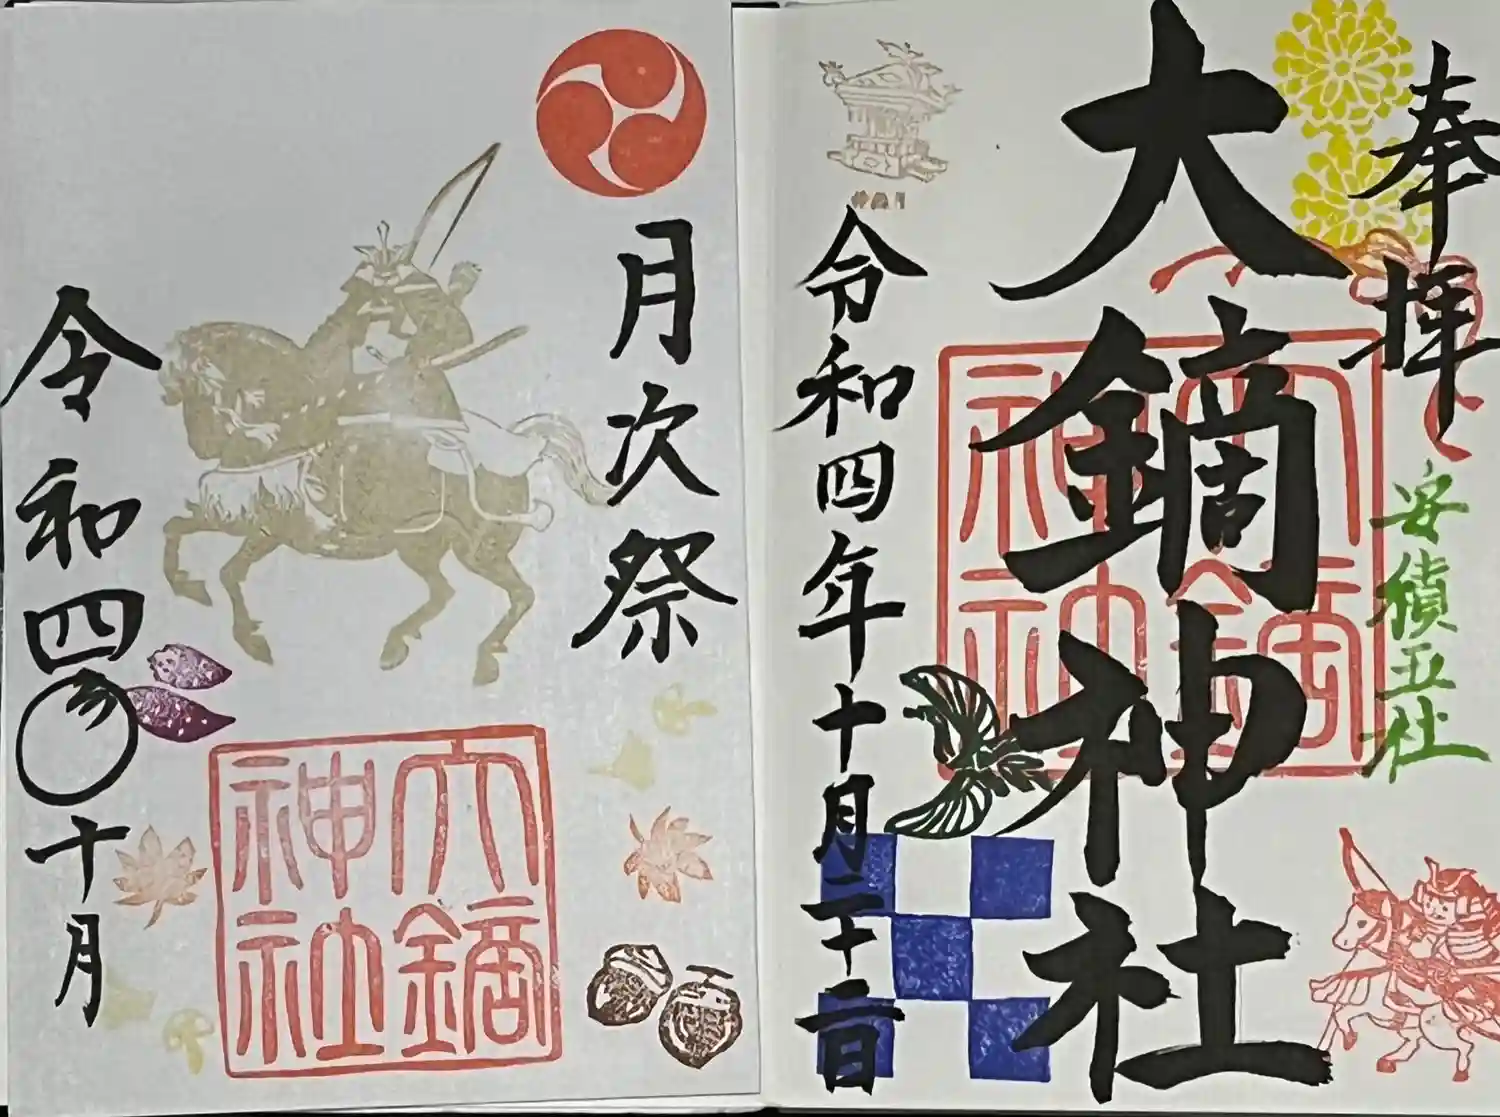 奉拝
安積五社
大鏑神社
大鏑神社
令和四年十月二十二日
月次祭
大鏑神社
令和四
十月